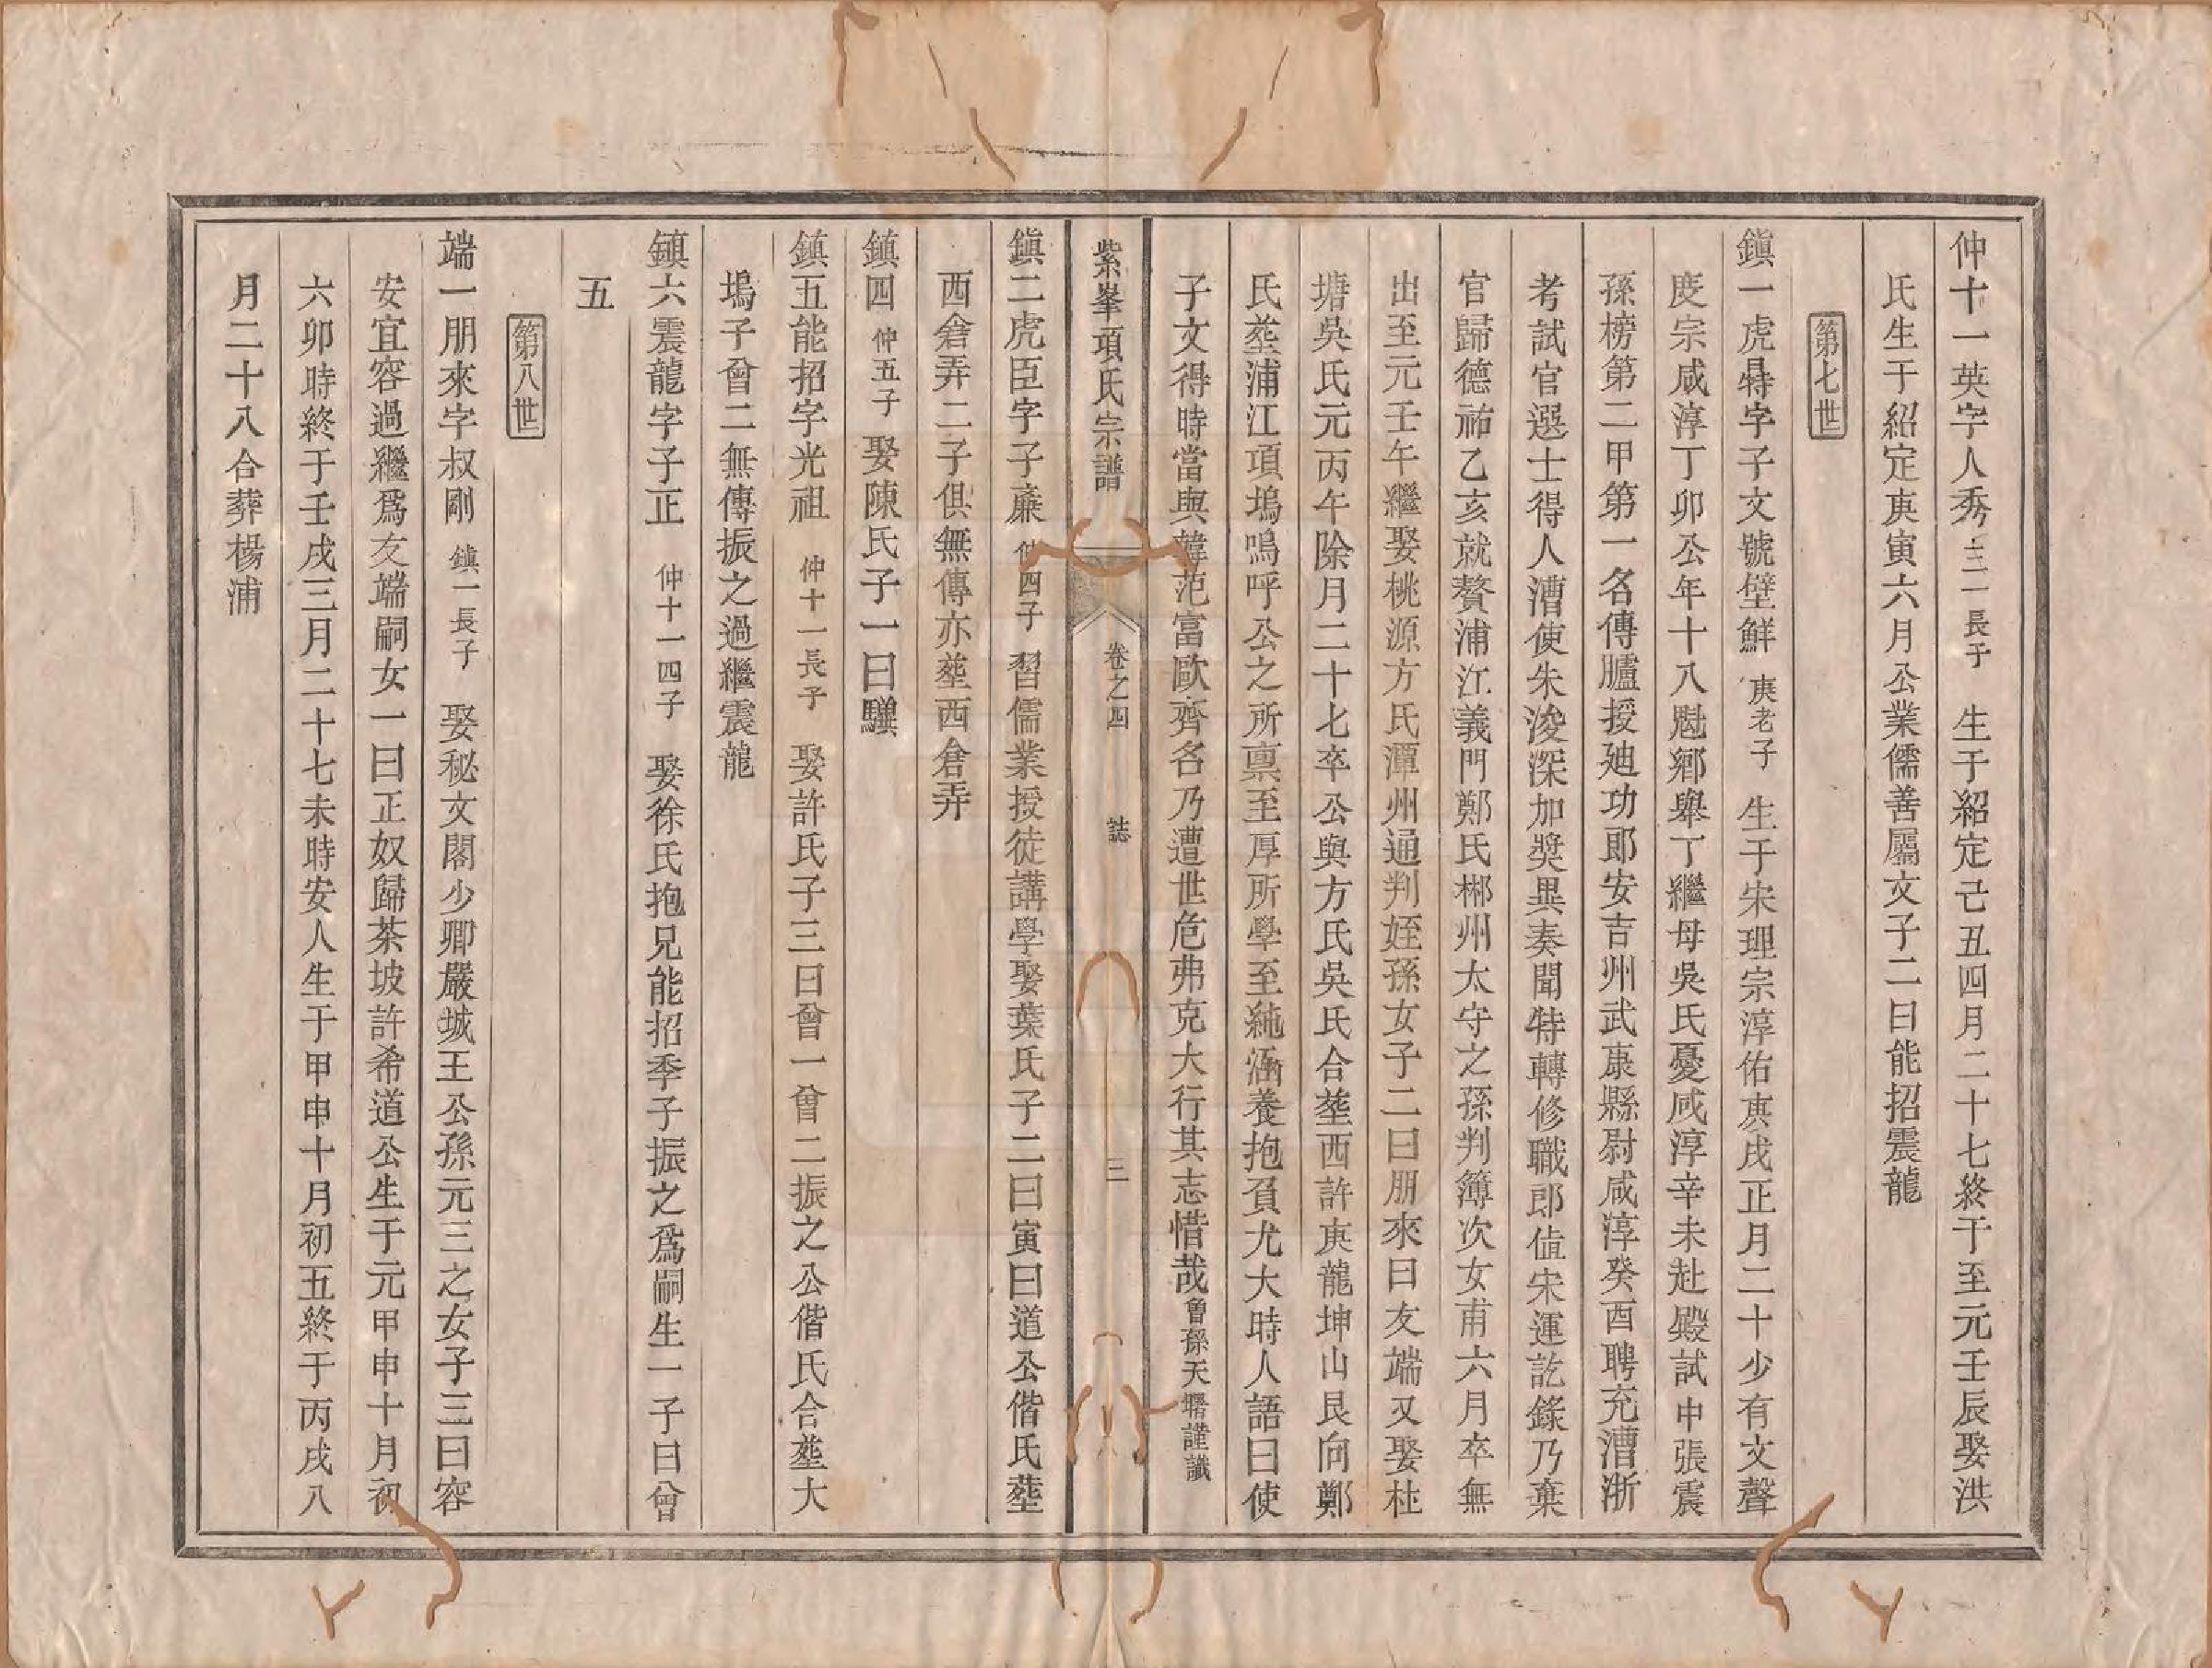 仲十一英字人秀三一長子生于紹定己丑四月二十七終于至元壬辰娶洪
氏生于紹定庚寅六月公業儒善屬文子二曰能招震龍
第七世
鎭一虎字子文號壁鮮庚老子生于宋理宗淳佑庚戌正月二十少有文聲
度宗咸淳丁卯公年十八魁鄉舉丁繼母吳氏憂咸淳辛未赴殿試中張震
孫榜第二甲第一名傳臚授廸功郎安吉州武康縣尉咸淳癸酉聘充漕浙
考試官選士得人漕使朱浚深加奬異奏聞特轉修職郎値宋運訖錄乃棄
官歸德祐乙亥就贅浦江義門鄭氏郴州太守之孫判簿次女甫六月卒無
出至元壬午繼娶桃源方氏潭州通判姪孫女子二曰朋來曰友端又娶杜
塘吳氏元丙午除月二十七卒公與方氏吳氏合塟西許庚龍坤山艮向鄭
氏塟浦江項塢嗚呼公之所禀至厚所學至純涵養抱負尤大時人語曰使
子文得時當與韓范富歐齊各乃遭世危弗克大行其志惜哉曾孫天謹識
紫峯項氏宗譜 卷之四 誌 三
鎭二虎臣字子廉仲四子習儒業授徒講學娶葉氏子二曰寅曰道公偕氏塟
西倉弄二子俱無傳亦塟西倉弄
鎭四仲五子娶陳氏子一曰驥
鎭五能招字光祖仲十一長子娶許氏子三曰曾一曾二振之公偕氏合塟大
塢子曾二無傳振之過繼震龍
鎭六震龍字子正仲十一四子娶徐氏抱兄能招季子振之爲嗣生一子曰曾
五
第八世
端一朋來字叔剛鎭一長子娶秘文閣少卿嚴城王公孫元三之女子三曰容
安宜容過繼爲友端嗣女一曰正奴歸茶坡許希道公生于元甲申十月初
六卯時終于壬戌三月二十七未時安人生于甲申十月初五終于丙戌八
月二十八合葬楊浦